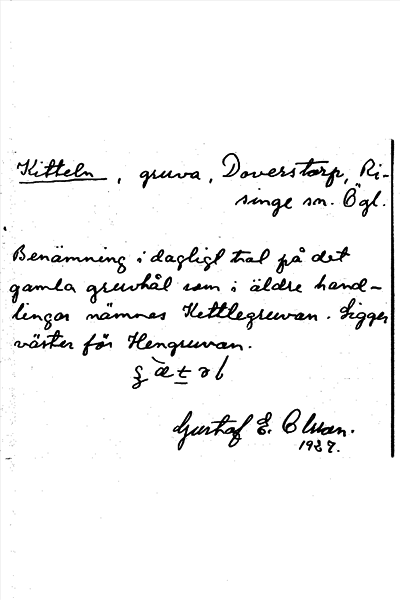 Kitteln, gruva, Doverstorp, Ri-
singe sn. Ögl.
Benämning i dagligt tal på det
gamla gruvhål som i äldre hand-
lingar nämnes Kettlegruvan. Ligger
väster för Hengruvan.
Gustaf E. Olsson.
1927.